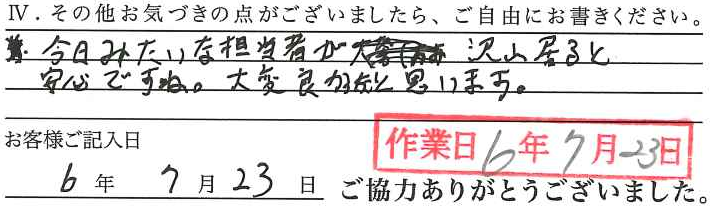 Ⅳ．その他お気づきの点がございましたら、ご自由にお書きください。
今日みたいな担当者が 沢山居ると
安心ですね。大変良かったと思います。
お客様ご記入日
作業日 6年 7月 23日
6 年 7 月 23 日 ご協力ありがとうございました。